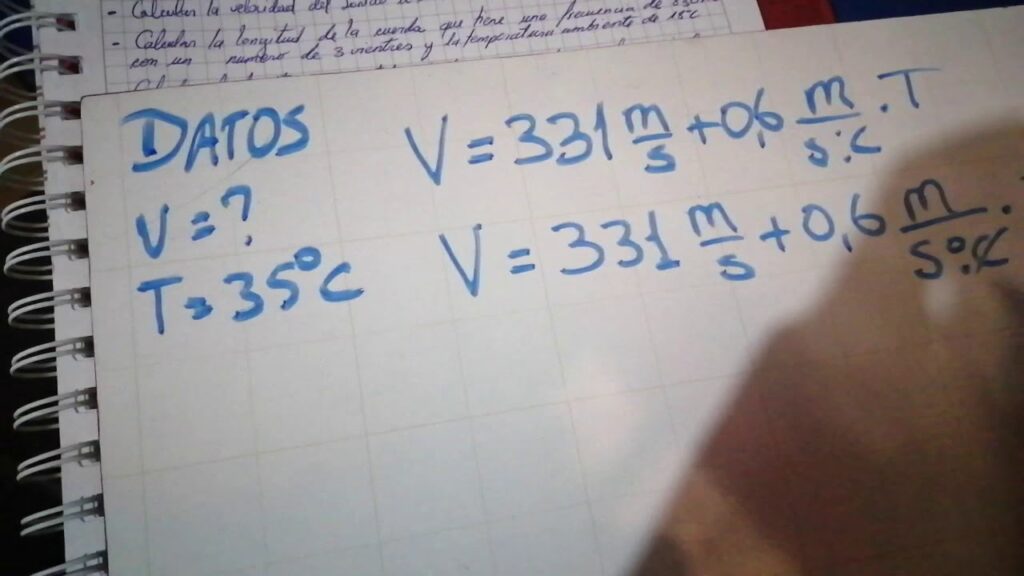 - Calcular la velocidad del
- Calcular la longitud de la cuerda que tiene una frecuencia de
con un numero de 3 vientres y la temperatura ambiente de 15°C
DATOS
V = ?
T = 35°C
V = 331 m/s + 0,6 m/s.°C . T
V = 331 m/s + 0,6 m/s°.C .